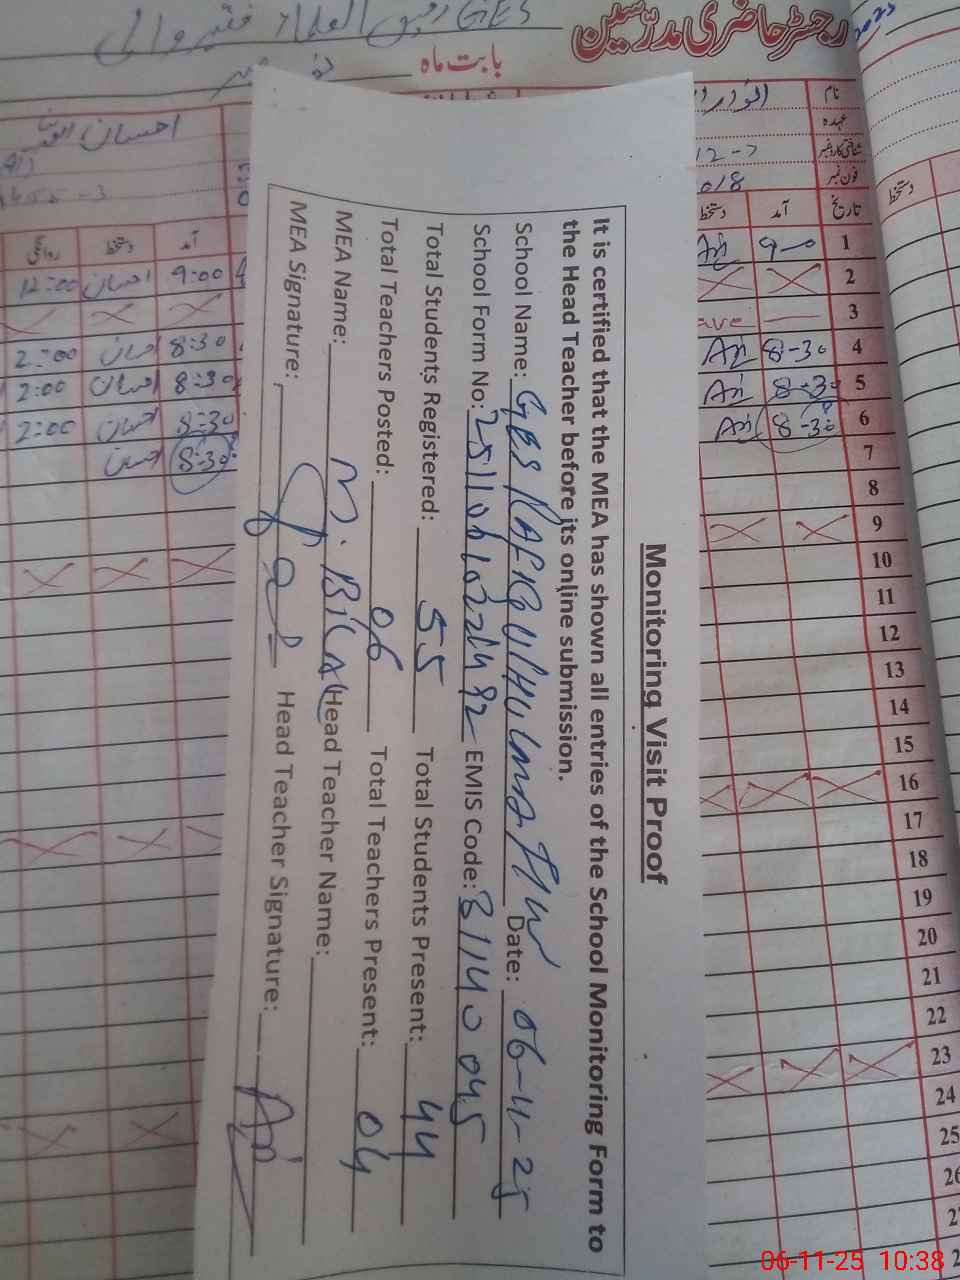 رجسٹر حاضری مدرّسین
بابت ماہ
GES
2025
نام
عہدہ
شناختی کارڈ نمبر
12-7
فون نمبر
018
احسان
تاریخ آمد دستخط
آمد دستخط روانگی
دستخط
1 9-0
9:00 احسان 12:00
2
3
4 8-30
8:30 احسان 2:00
5 8-30
8:30 احسان 2:00
6 8-30
8:30 احسان 2:00
7
8:30 احسان
8
9
10
11
12
13
14
15
16
17
18
19
20
21
22
23
24
25
26
Monitoring Visit Proof
It is certified that the MEA has shown all entries of the School Monitoring Form to
the Head Teacher before its online submission.
School Name: GES RAFIQ UL HULMA FWW Date: 06-11-25
School Form No: EMIS Code: 31140045
Total Students Registered: 55 Total Students Present: 44
Total Teachers Posted: 06 Total Teachers Present: 04
MEA Name: M. BILAL Head Teacher Name:
MEA Signature: Head Teacher Signature:
06-11-25 10:38